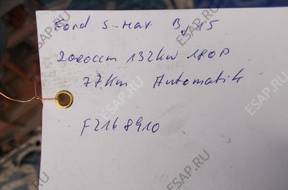 Ford S-Max Bj 15
2000ccm 132kw 180P
77km Automatik
F2168910
ESAP.RU
ESAP.RU
ESAP.RU
ESAP.RU